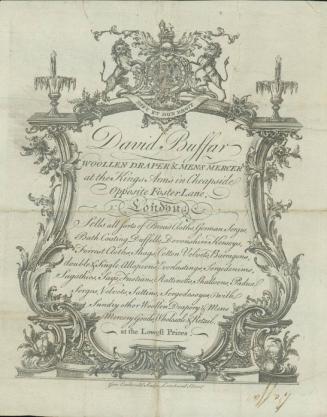 DIEU ET MON DROIT
David Buffar
WOOLLEN DRAPER & MENS MERCER
at the Kings Arms in Cheapside
Opposite Foster Lane,
London,
Sells all sorts of Broad Cloths, German Serges,
Bath Coating, Duffells, Devonshire Kerseys,
Forrest Cloths, Shags, Cotton Velvets, Barragons,
double & Single Allopeens, Everlastings, Sergedenims,
Sagathies, Says, Fustians, Rattinetts, Shalloons, Padua
Serges, Velvets, Sattins, Sergedusoys, with
Sundry other Woollen Drapery & Mens
Mercery Goods, Wholesale & Retail,
at the Lowest Prices
Lombard Street